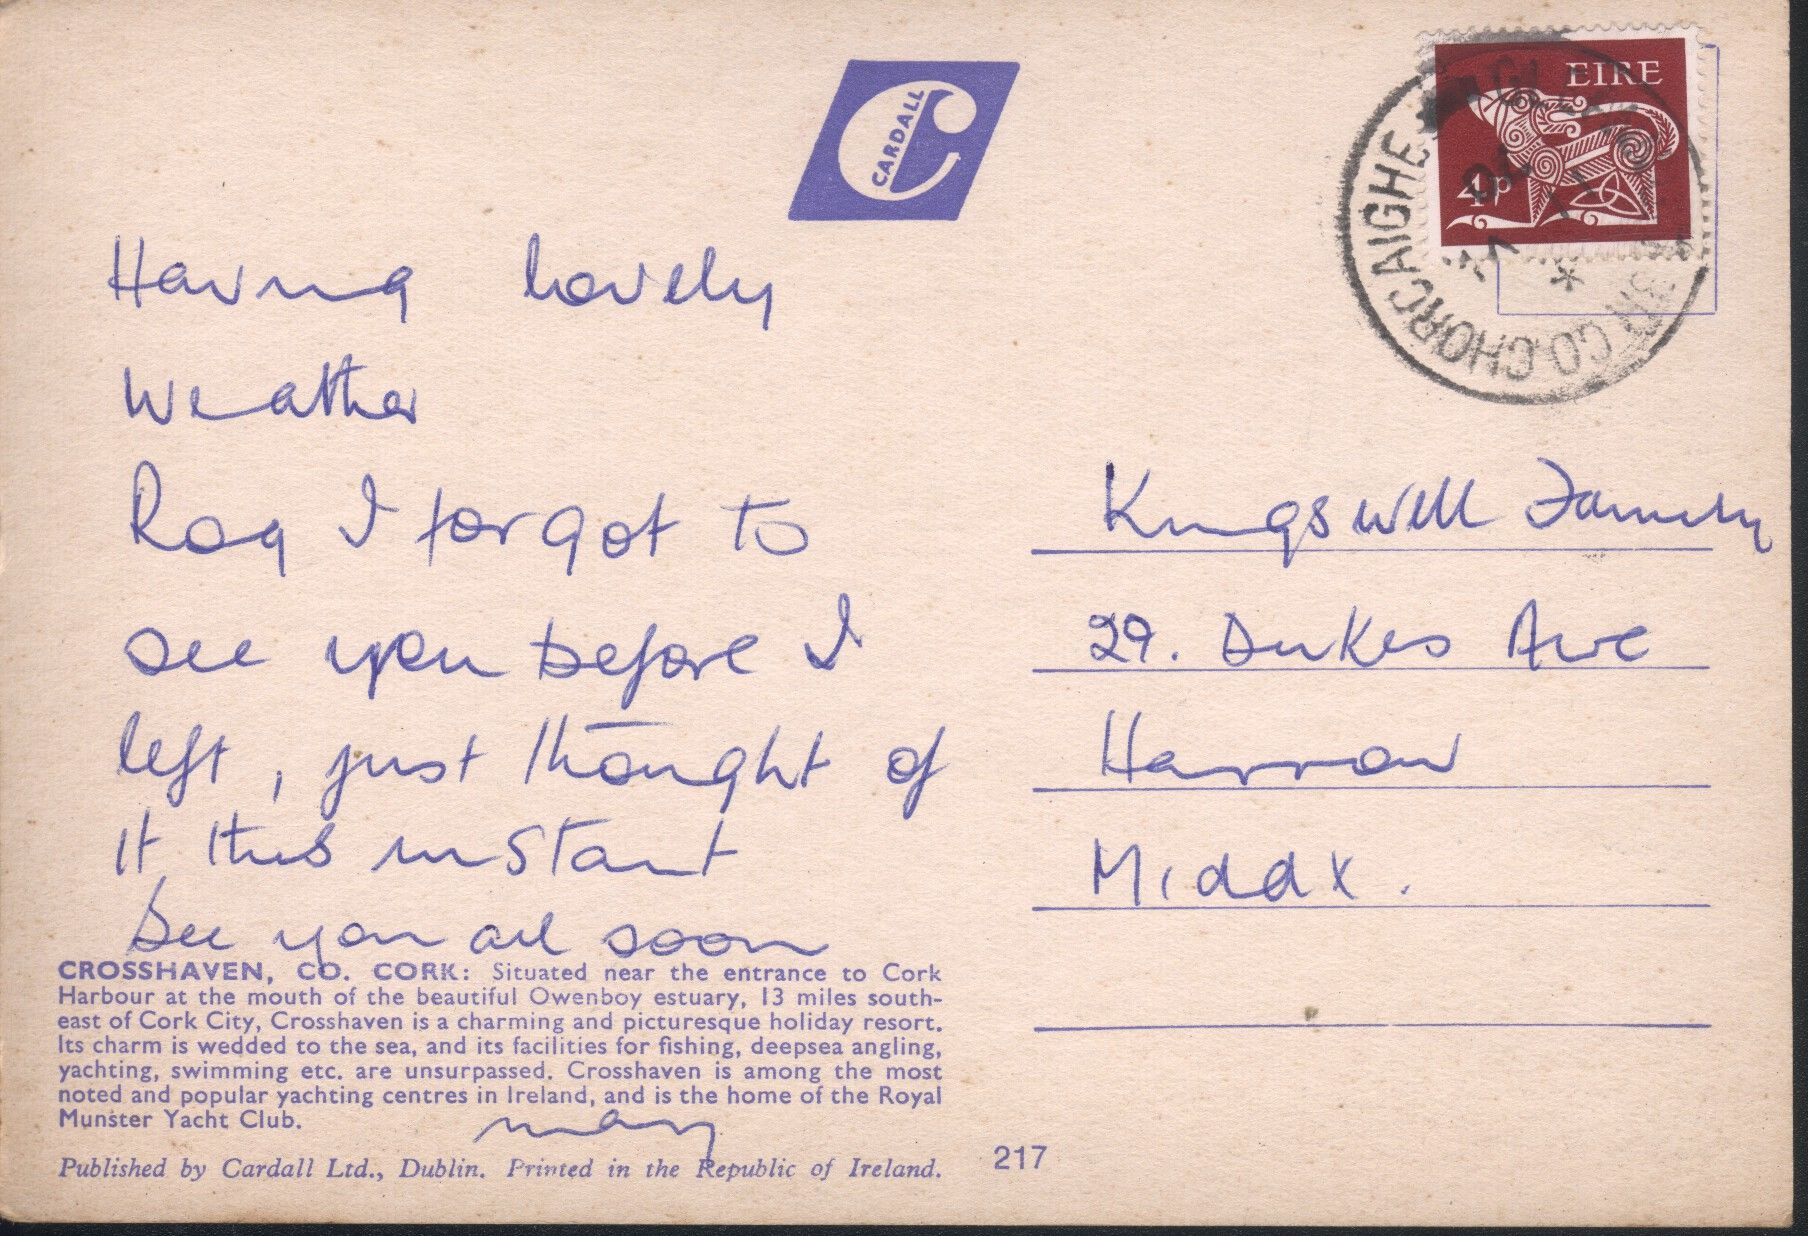 CARDALL
EIRE
4p
CO. CHORCAIGHE
Having lovely
Weather
Roy I forgot to
see you before I
left, just thought of
It this instant
See you all soon
Mary
Kingswell Family
29. Dukes Ave
Harrow
Middx.
CROSSHAVEN, CO. CORK: Situated near the entrance to Cork
Harbour at the mouth of the beautiful Owenboy estuary, 13 miles south-
east of Cork City, Crosshaven is a charming and picturesque holiday resort.
Its charm is wedded to the sea, and its facilities for fishing, deepsea angling,
yachting, swimming etc. are unsurpassed. Crosshaven is among the most
noted and popular yachting centres in Ireland, and is the home of the Royal
Munster Yacht Club.
Published by Cardall Ltd., Dublin. Printed in the Republic of Ireland.
217